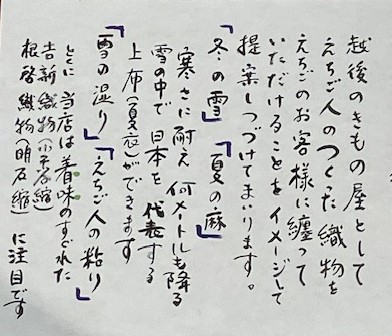 越後のきもの屋として
えちご人のつくった織物を
えちごのお客様に纏って
いただけることをイメージして
提案しつづけてまいります。
「冬の雪」「夏の麻」
寒さに耐え何メートルも降る
雪の中で日本を代表する
上布(夏衣)ができます
「雪の湿り」「えちご人の粘り」
とくに当店は着味のすぐれた
吉新織物(小千谷縮)
根啓織物(明石縮)
に注目です